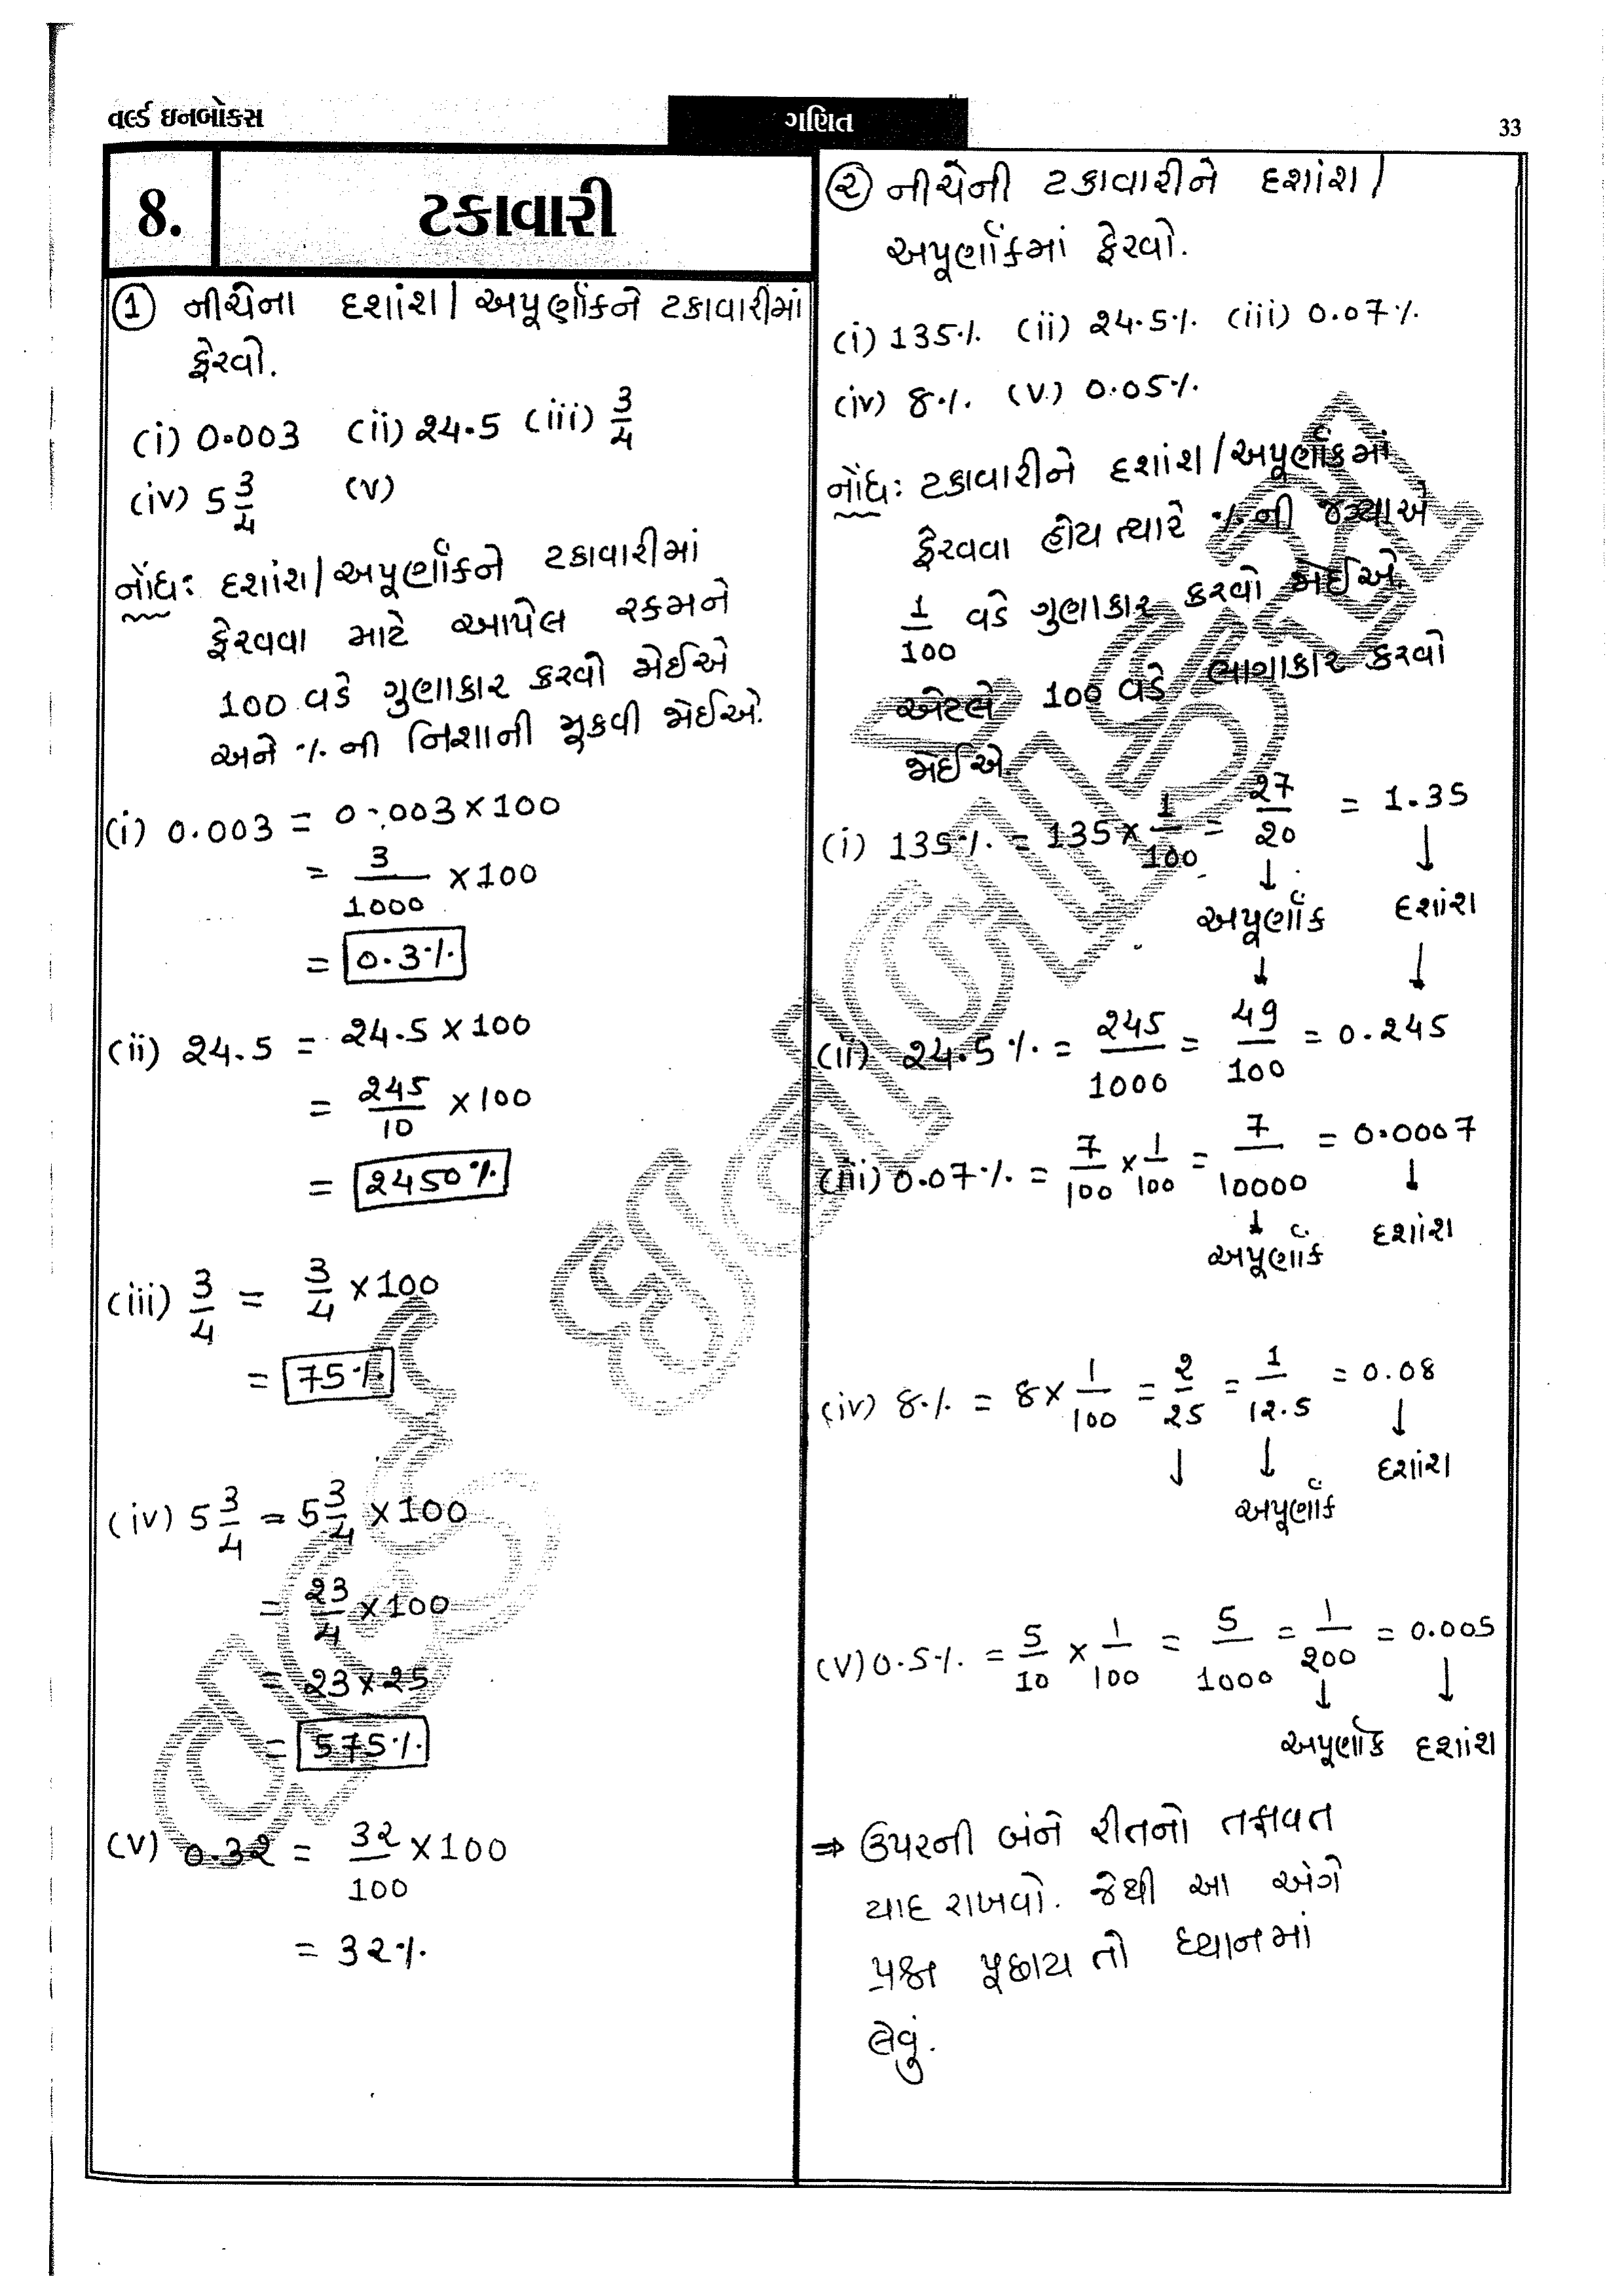 વર્લ્ડ ઇનબૉક્સ
ગણિત
33
8.
ટકાવારી
① નીચેના દશાંશ / અપૂર્ણાંકને ટકાવારીમાં
ફેરવો.
(i) 0.003 (ii) 24.5 (iii) 3/4
(iv) 5 3/4 (v)
નોંધ: દશાંશ / અપૂર્ણાંકને ટકાવારીમાં
ફેરવવા માટે આપેલ રકમને
100 વડે ગુણાકાર કરવો જોઈએ
અને % ની નિશાની મૂકવી જોઈએ.
(i) 0.003 = 0.003 × 100
= 3/1000 × 100
= 0.3%
(ii) 24.5 = 24.5 × 100
= 245/10 × 100
= 2450%
(iii) 3/4 = 3/4 × 100
= 75%
(iv) 5 3/4 = 5 3/4 × 100
= 23/4 × 100
= 23 × 25
= 575%
(v) 0.32 = 32/100 × 100
= 32%
② નીચેની ટકાવારીને દશાંશ /
અપૂર્ણાંકમાં ફેરવો.
(i) 135% (ii) 24.5% (iii) 0.07%
(iv) 8% (v) 0.05%
નોંધ: ટકાવારીને દશાંશ / અપૂર્ણાંકમાં
ફેરવવા હોય ત્યારે % ની જગ્યાએ
1/100 વડે ગુણાકાર કરવો જોઈએ
એટલે 100 વડે ભાગાકાર કરવો
જોઈએ.
(i) 135% = 135 × 1/100 = 27/20 = 1.35
↓ ↓
અપૂર્ણાંક દશાંશ
↓ ↓
(ii) 24.5% = 245/1000 = 49/100 = 0.245
(iii) 0.07% = 7/100 × 1/100 = 7/10000 = 0.0007
↓ ↓
અપૂર્ણાંક દશાંશ
(iv) 8% = 8 × 1/100 = 2/25 = 1/12.5 = 0.08
↓ ↓ ↓
અપૂર્ણાંક દશાંશ
(v) 0.5% = 5/10 × 1/100 = 5/1000 = 1/200 = 0.005
↓ ↓
અપૂર્ણાંક દશાંશ
⇒ ઉપરની બંને રીતનો તફાવત
યાદ રાખવો. જેથી આ અંગે
પ્રશ્ન પૂછાય તો ધ્યાનમાં
લેવું.